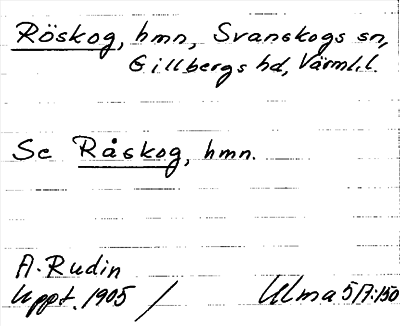 Röskog, hmn, Svanskogs sn,
Gillbergs hd, Värml.l.
Se Råskog, hmn.
A. Rudin
Uppt. 1905 / Ulma 57:150